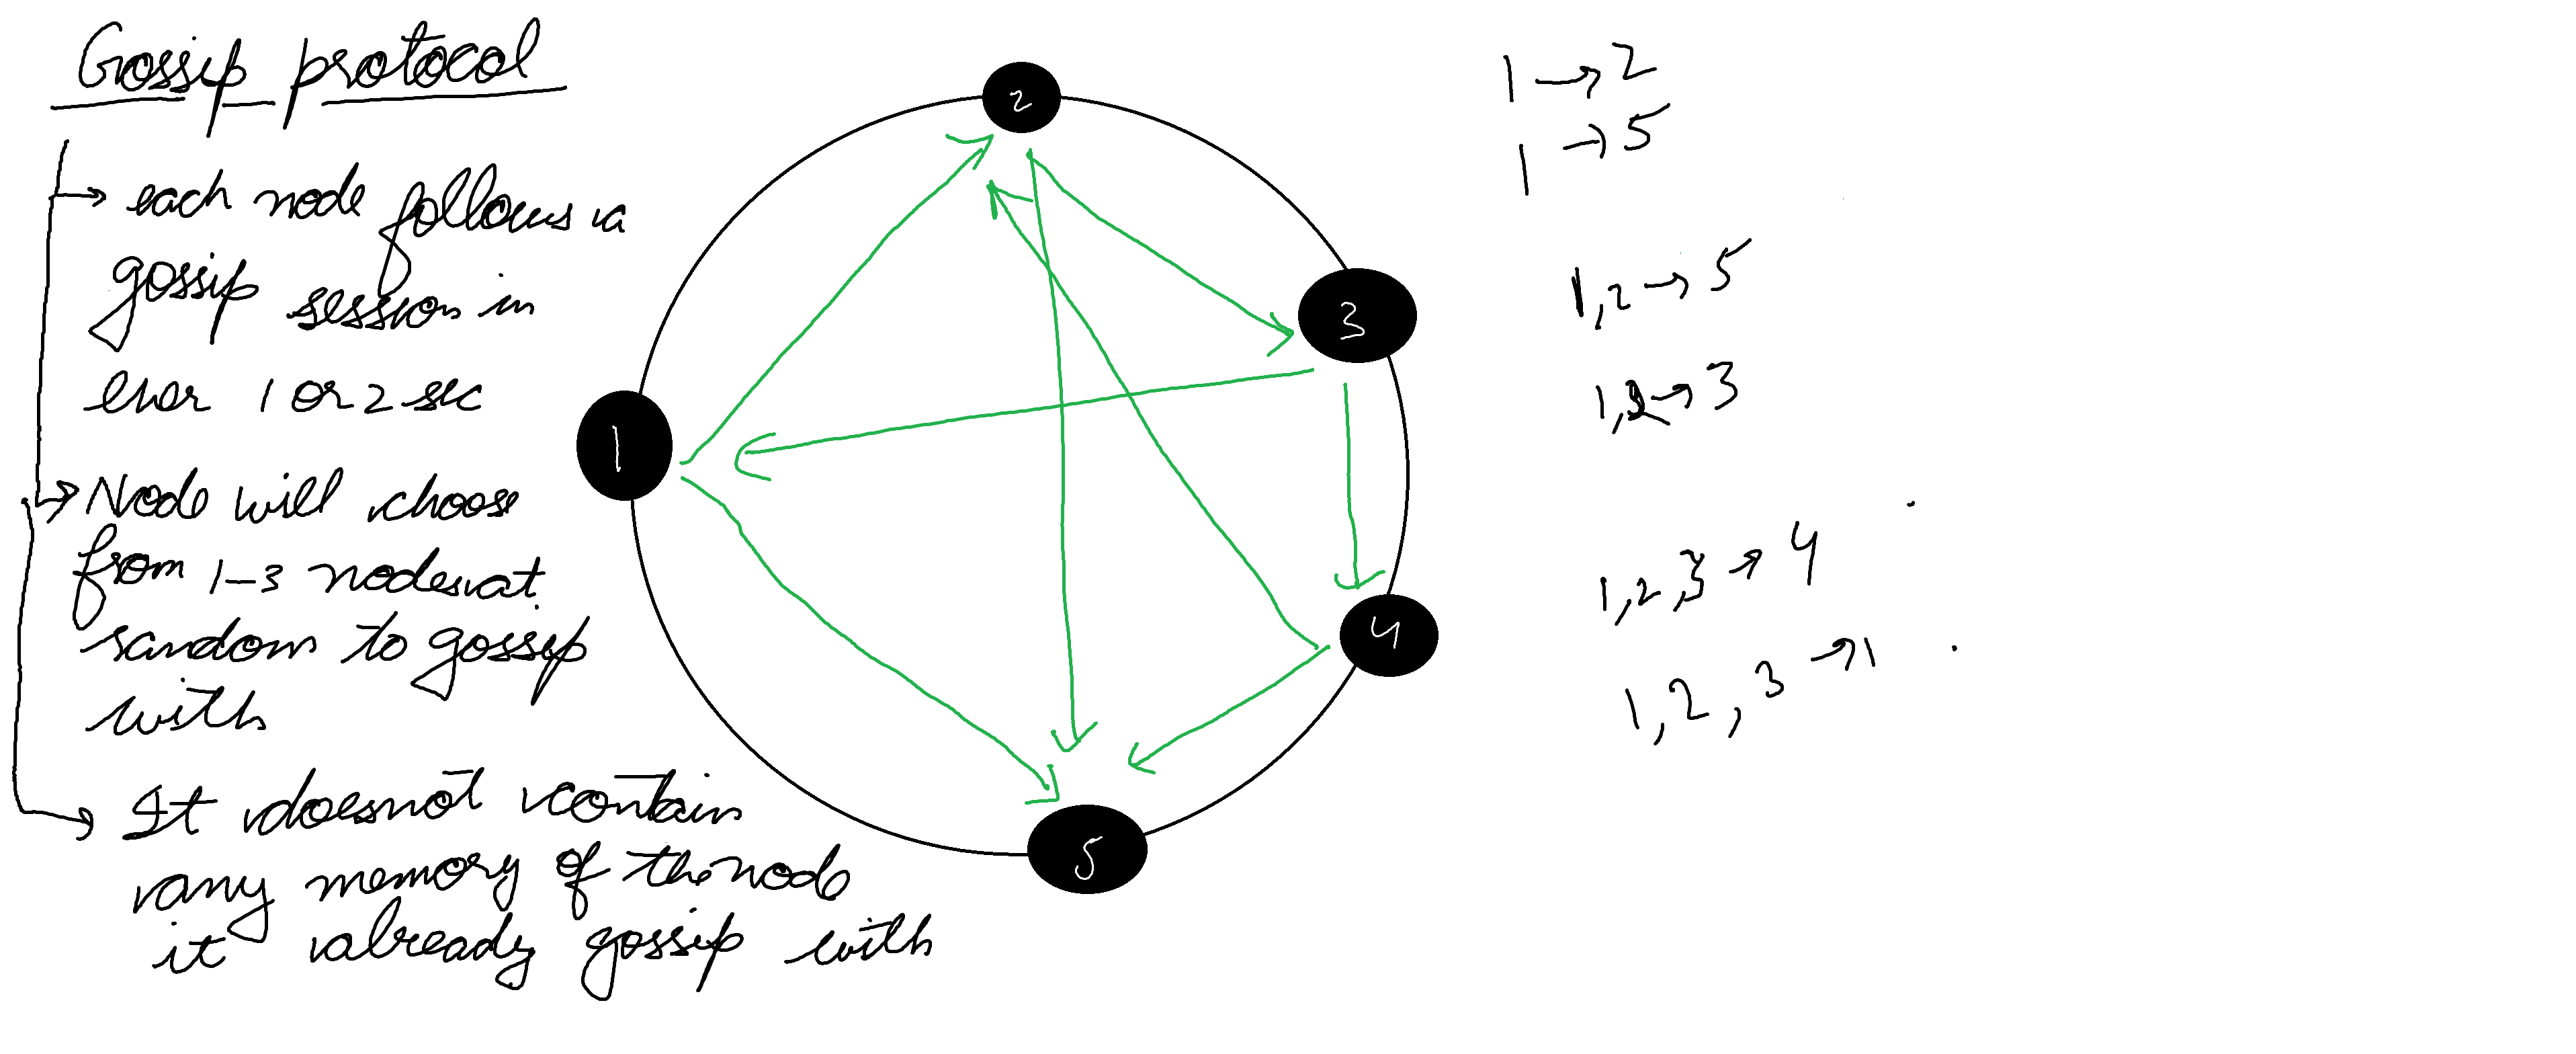 Gossip protocol
each node follows a
gossip session in
ever 1 or 2 sec
Node will choose
from 1-3 nodes at
random to gossip
with
It doesnot contain
any memory of the node
it already gossip with
2
3
1
4
5
1 → 2
1 → 5
1,2 → 5
1,2 → 3
1,2,3 → 4
1,2,3 → 1